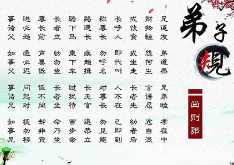 弟子規
出则悌
兄道友 弟道恭 兄弟睦 孝在中
财物轻 怨何生 言语忍 忿自泯
或饮食 或坐走 长者先 幼者后
长呼人 即代叫 人不在 己即到
称尊长 勿呼名 对尊长 勿见能
路遇长 疾趋揖 长无言 退恭立
骑下马 乘下车 过犹待 百步余
长者立 幼勿坐 长者坐 命乃坐
尊长前 声要低 低不闻 却非宜
进必趋 退必迟 问起对 视勿移
事诸父 如事父 事诸兄 如事兄